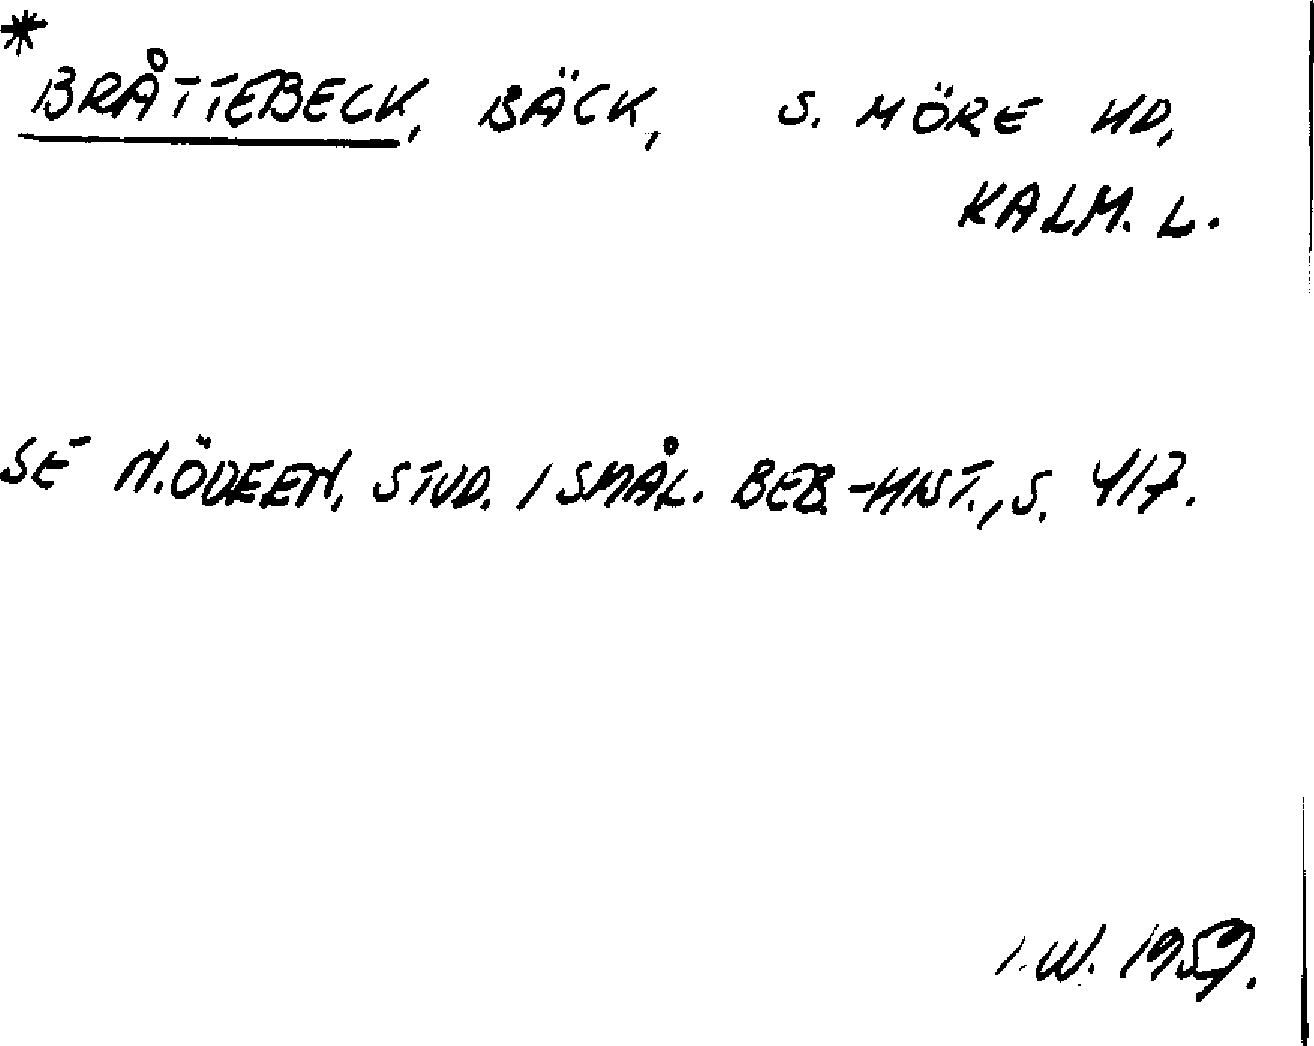 *BRÅTTEBECK, BÄCK, S. MÖRE HD,
KALM. L.
SE N. ÖDEEN, STUD. I SMÅL. BEB.-HIST., S. 417.
I.W. 1959.